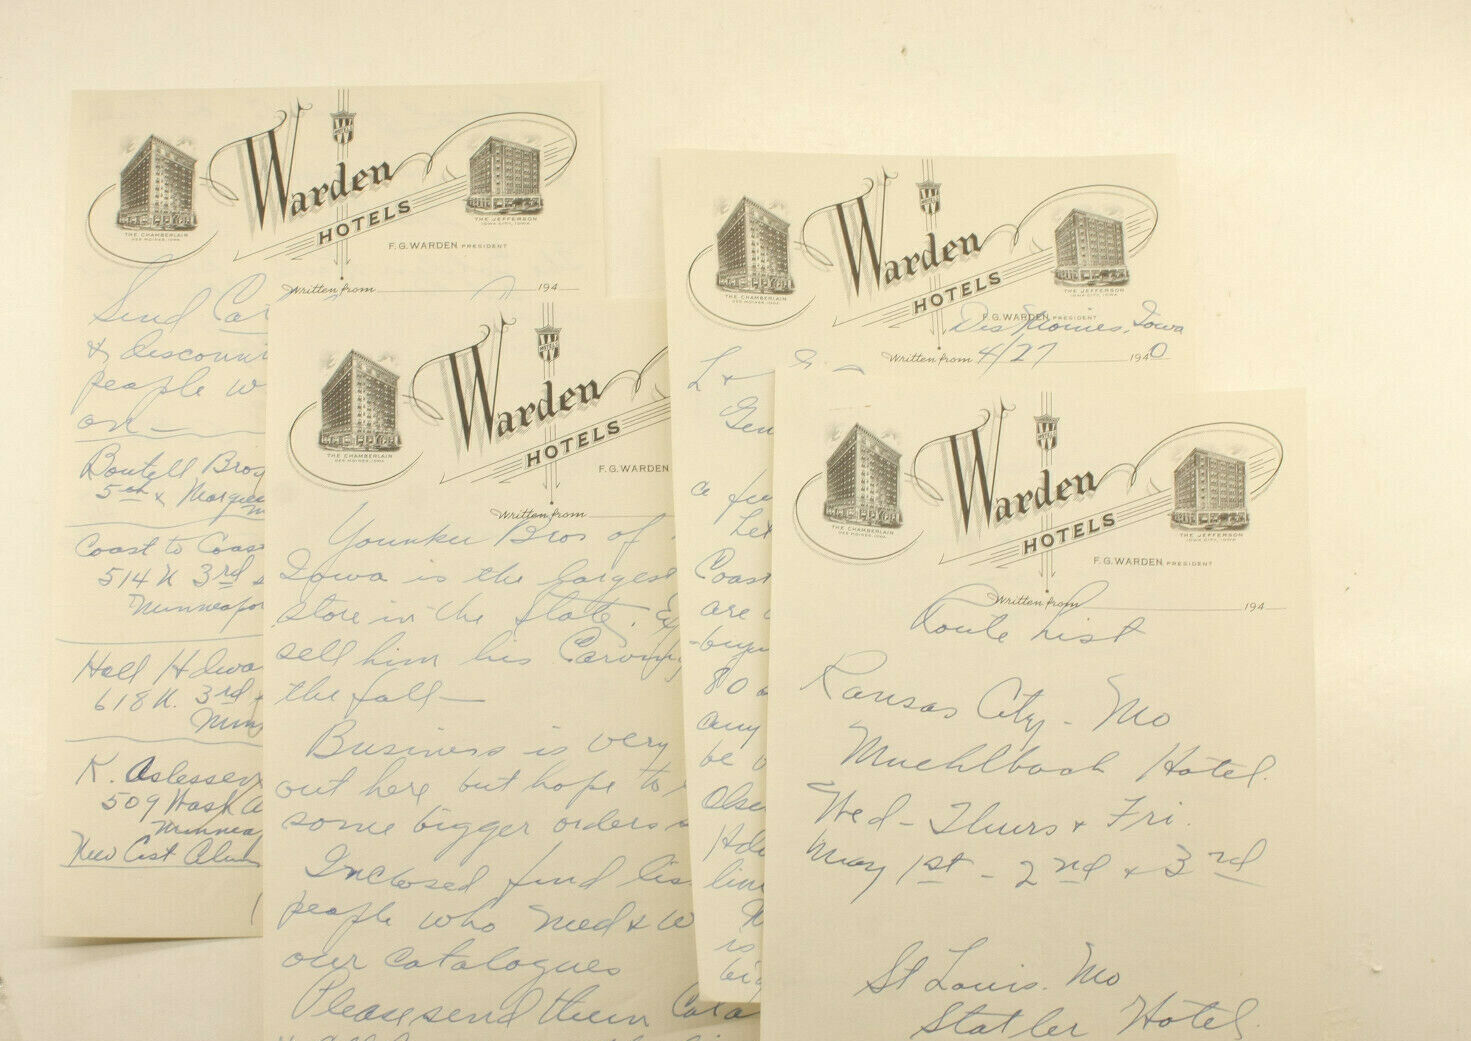 Warden
HOTELS
THE CHAMBERLAIN
DES MOINES, IOWA
THE JEFFERSON
IOWA CITY, IOWA
F. G. WARDEN PRESIDENT
Written from 194
Send Cat
& discoun
people w
on —
Boutell Bros
5th & Marque
Coast to Coas
514 N 3rd s
Minneapo
Hall Hdwa
618 N. 3rd
Minn
K. Aslessen
509 Wash A
Minnea
New Cast Alum
Warden
HOTELS
THE CHAMBERLAIN
DES MOINES, IOWA
F. G. WARDEN
Written from
Younker Bros of
Iowa is the largest
store in the State.
sell him his Carving
the fall —
Business is very
out here but hope to
some bigger orders
Inclosed find lis
people who need & w
our catalogues
Please send them Cata
Warden
HOTELS
THE CHAMBERLAIN
DES MOINES, IOWA
THE JEFFERSON
IOWA CITY, IOWA
F. G. WARDEN PRESIDENT
Des Moines, Iowa
Written from 4/27 1940
L &
Gen
a
Let
Coast
are
buy
80
any
be
Olse
Hdw
line
is
big
Warden
HOTELS
THE CHAMBERLAIN
DES MOINES, IOWA
THE JEFFERSON
IOWA CITY, IOWA
F. G. WARDEN PRESIDENT
Written from 194
Route List
Kansas City - Mo
Muehlbach Hotel.
Wed - Thurs & Fri.
May 1st - 2nd & 3rd
St Louis. Mo
Statler Hotel.